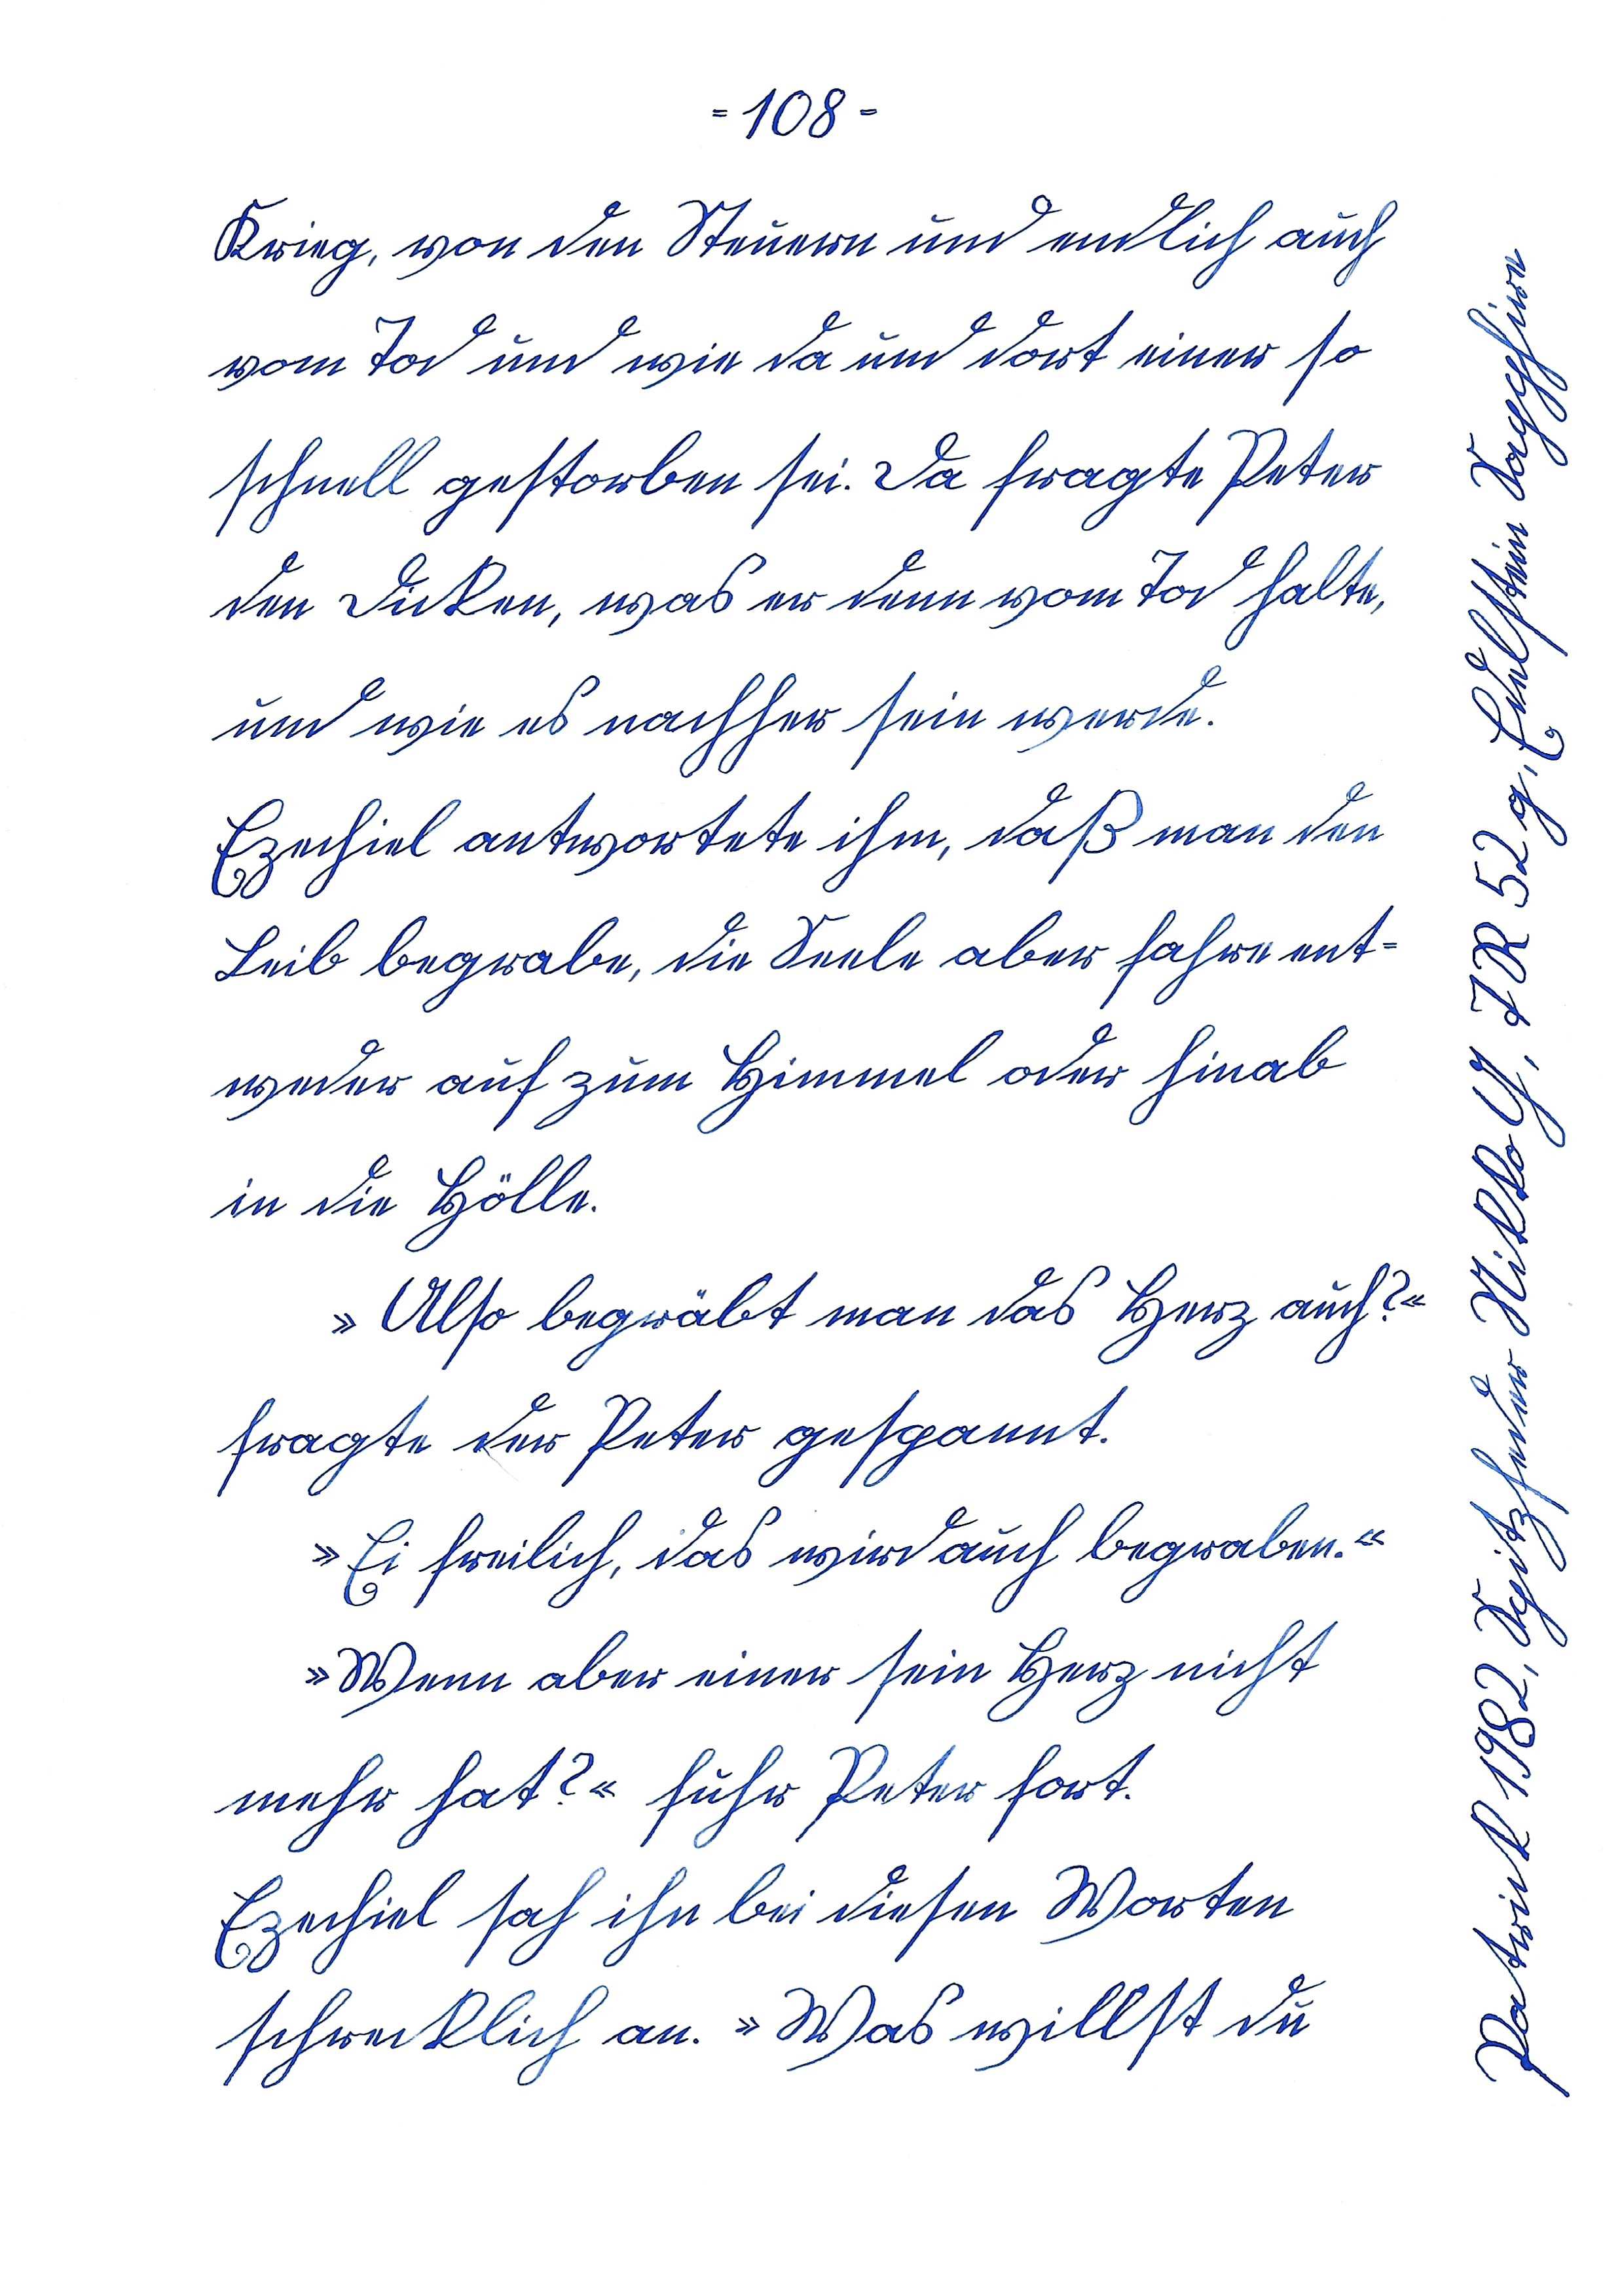 -108-
Krieg, von den Steuern und endlich auch
vom Tod und wie da und dort einer so
schnell gestorben sei. Da fragte Peter
den Dicken, was er denn vom Tod halte,
und wie es nachher sein werde.
Ezechiel antwortete ihm, daß man den
Leib begrabe, die Seele aber fahre ent=
weder auf zum Himmel oder hinab
in die Hölle.
»Also begräbt man das Herz auch?«
fragte der Peter gespannt.
»Ei freilich, das wird auch begraben.«
»Wenn aber einer sein Herz nicht
mehr hat?« fuhr Peter fort.
Ezechiel sah ihn bei diesen Worten
schrecklich an. »Was willst du
Patrick 1982, Spitzfeder Nikko G, JR 52 g, Edelstein Sapphire